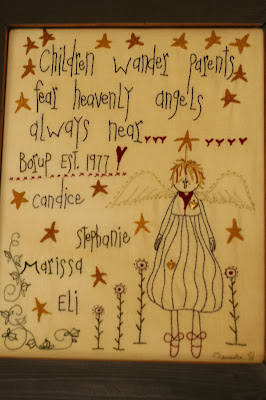 Children wander parents
fear heavenly angels
always near...
Borup EST. 1977
candice
Stephanie
Marissa
Eli